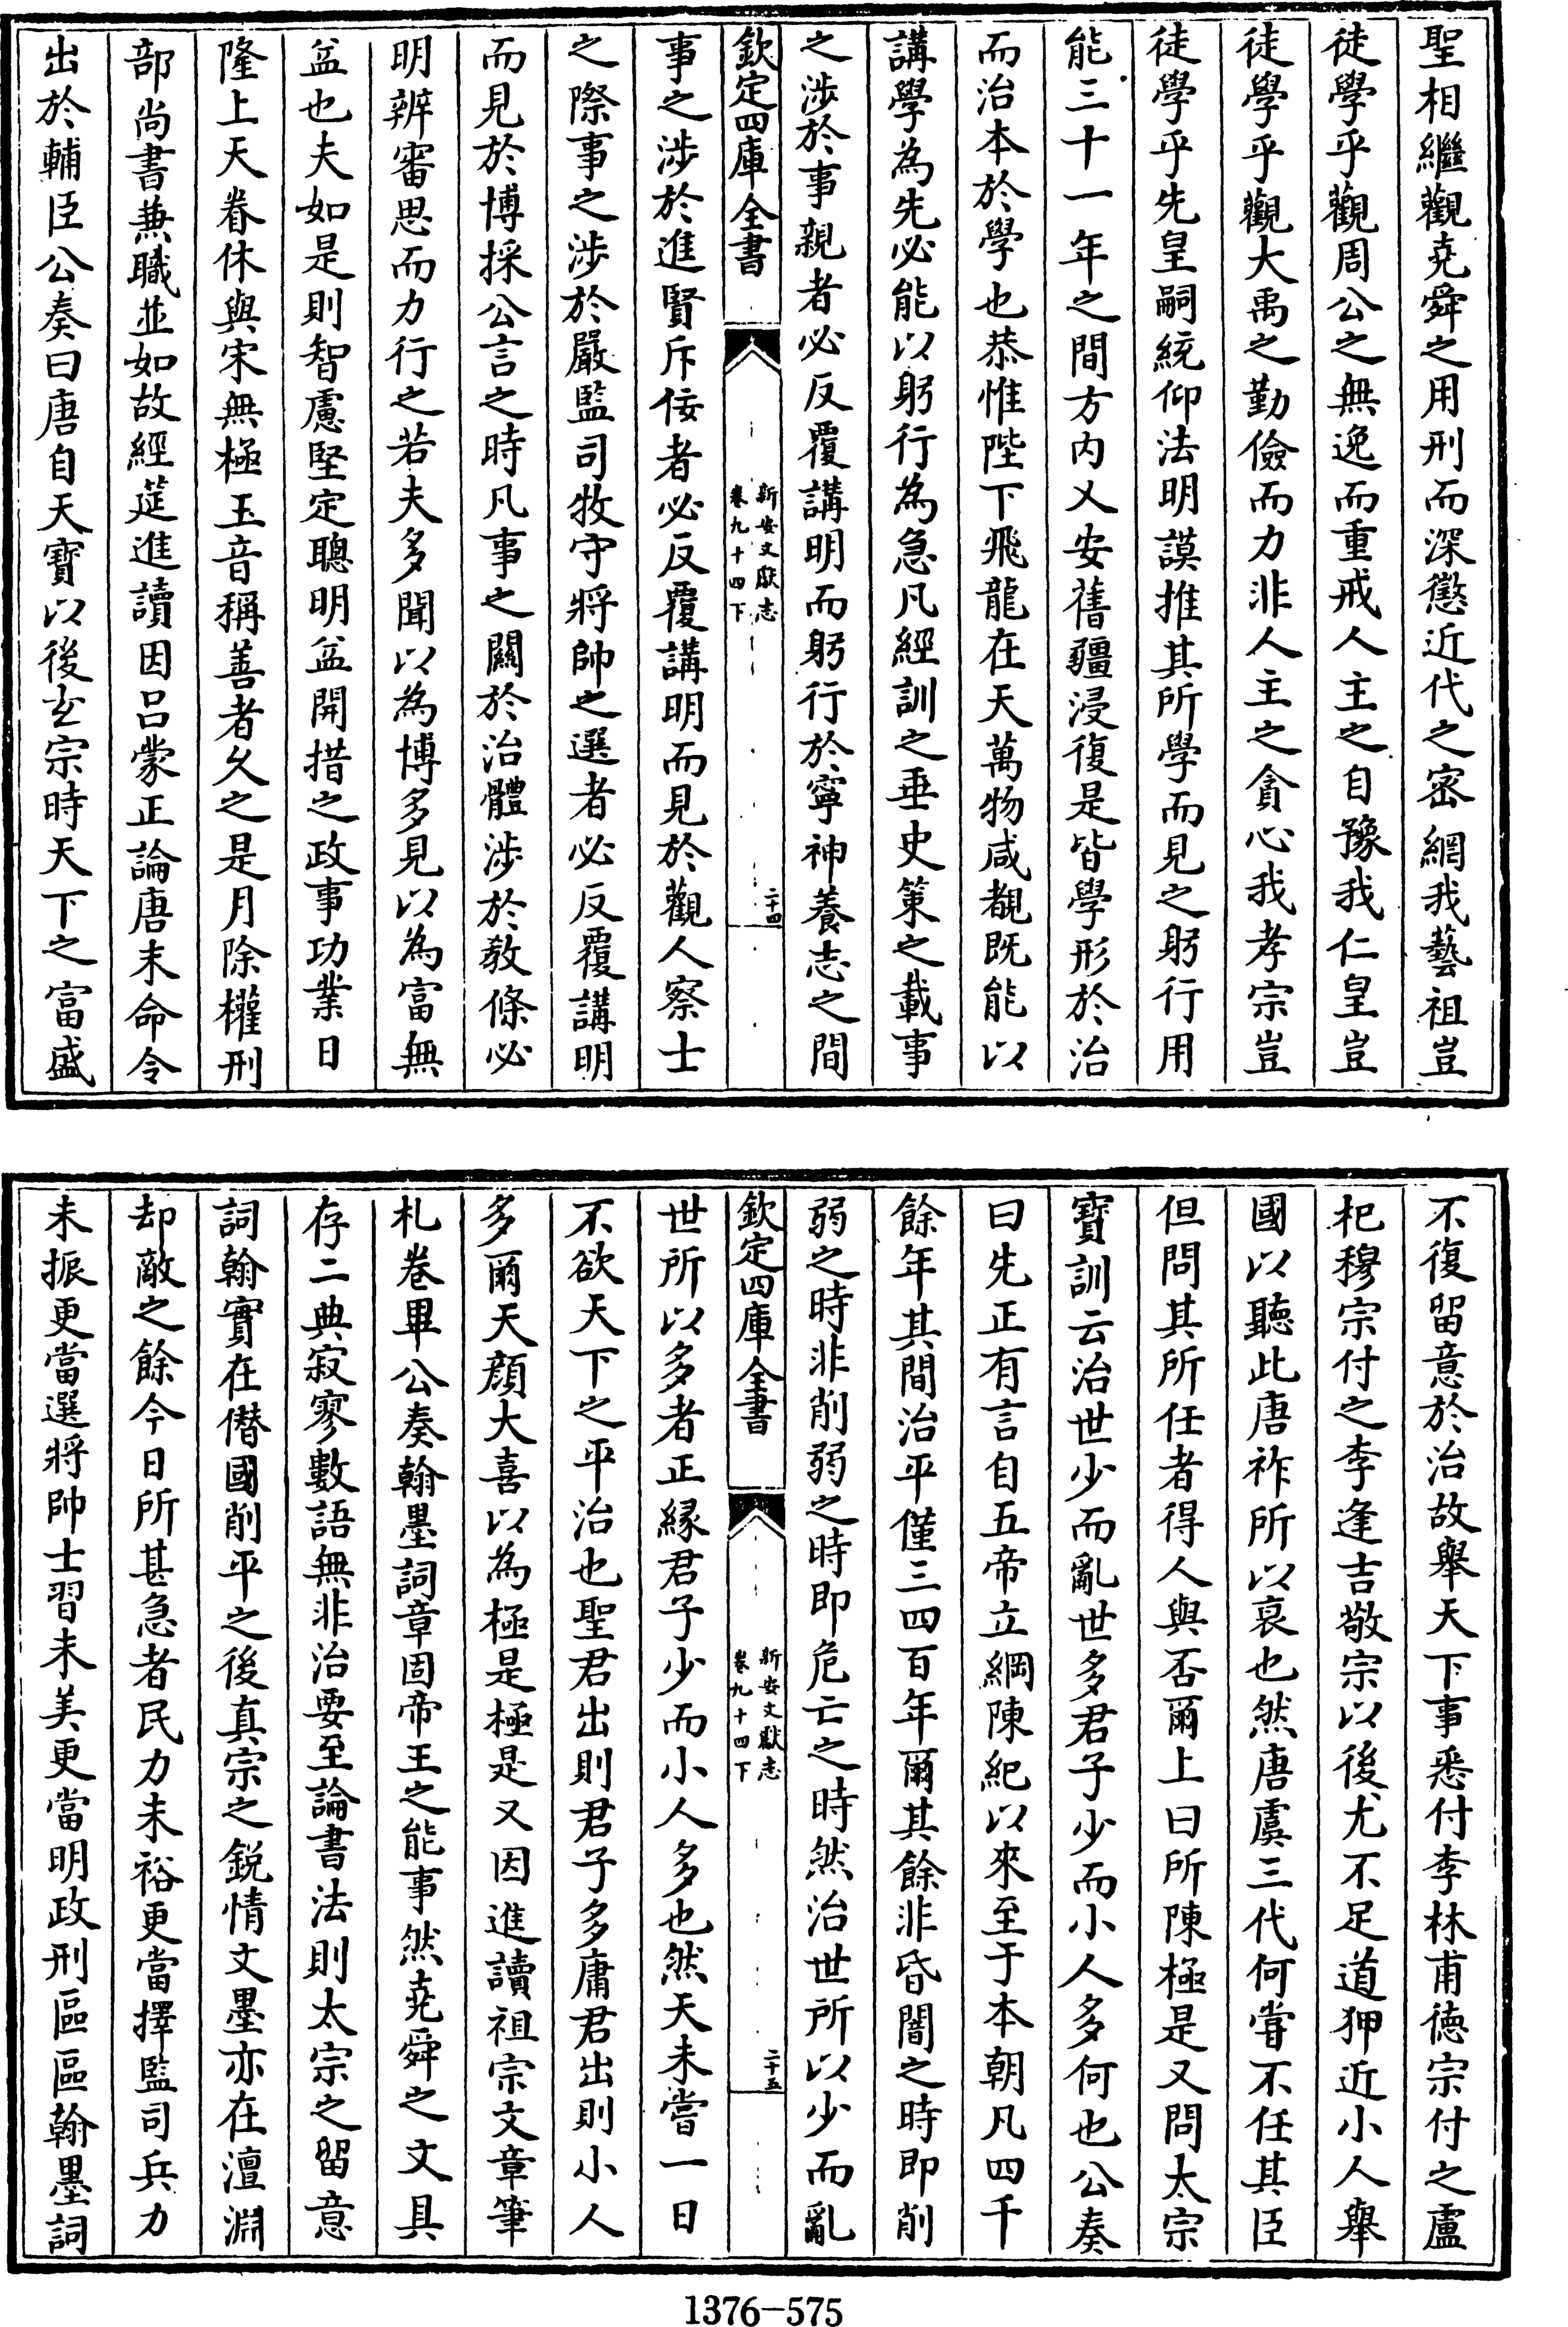 聖相繼觀堯舜之用刑而深懲近代之密網我藝祖豈
徒學乎觀周公之無逸而重戒人主之自豫我仁皇豈
徒學乎觀大禹之勤儉而力非人主之貪心我孝宗豈
徒學乎先皇嗣統仰法明謨推其所學而見之躬行用
能三十一年之間方内乂安舊疆浸復是皆學形於治
而治本於學也恭惟陛下飛龍在天萬物咸覩既能以
講學為先必能以躬行為急凡經訓之垂史策之載事
之涉於事親者必反覆講明而躬行於寧神養志之間
欽定四庫全書
新安文獻志
卷九十四下
二十四
事之涉於進賢斥佞者必反覆講明而見於觀人察士
之際事之涉於嚴監司牧守將帥之選者必反覆講明
而見於博採公言之時凡事之關於治體涉於教條必
明辨審思而力行之若夫多聞以為博多見以為富無
益也夫如是則智慮堅定聰明益開措之政事功業日
隆上天眷休與宋無極玉音稱善者久之是月除權刑
部尚書兼職並如故經筵進讀因呂蒙正論唐末命令
出於輔臣公奏曰唐自天寳以後玄宗時天下之富盛
不復留意於治故舉天下事悉付李林甫德宗付之盧
杞穆宗付之李逢吉敬宗以後尤不足道狎近小人舉
國以聽此唐祚所以衰也然唐虞三代何嘗不任其臣
但問其所任者得人與否爾上曰所陳極是又問太宗
寳訓云治世少而亂世多君子少而小人多何也公奏
曰先正有言自五帝立綱陳紀以來至于本朝凡四千
餘年其間治平僅三四百年爾其餘非昏闇之時即削
弱之時非削弱之時即危亡之時然治世所以少而亂
欽定四庫全書
新安文獻志
卷九十四下
二十五
世所以多者正縁君子少而小人多也然天未嘗一日
不欲天下之平治也聖君出則君子多庸君出則小人
多爾天顔大喜以為極是極是又因進讀祖宗文章筆
札卷畢公奏翰墨詞章固帝王之能事然堯舜之文具
存二典寂寥數語無非治要至論書法則太宗之留意
詞翰實在僭國削平之後真宗之鋭情文墨亦在澶淵
却敵之餘今日所甚急者民力未裕更當擇監司兵力
未振更當選將帥士習未美更當明政刑區區翰墨詞
1376-575